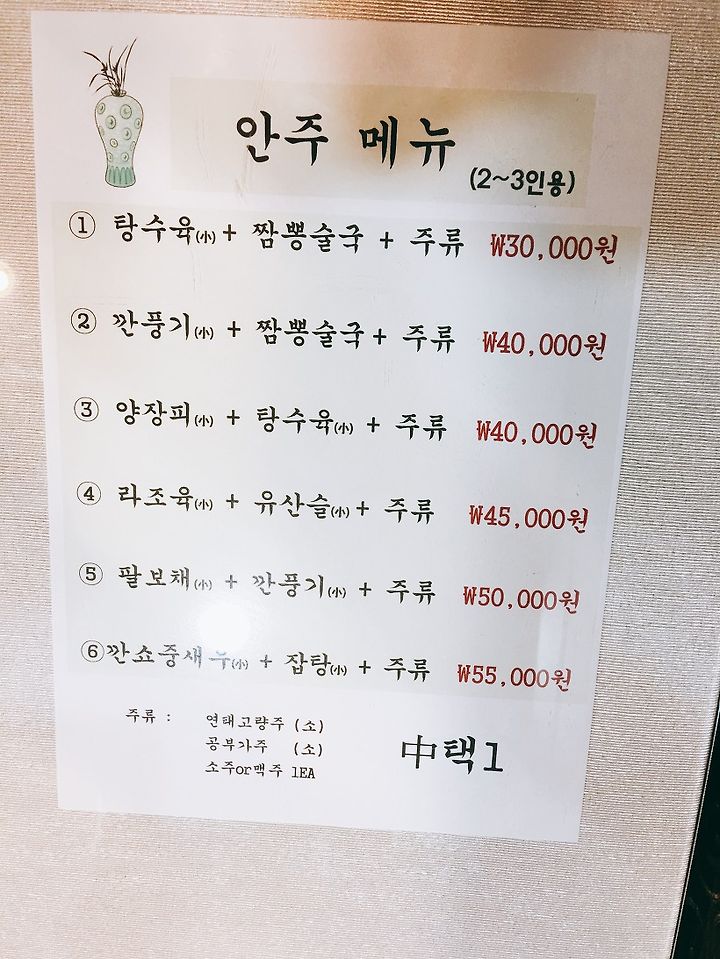 안주 메뉴
(2~3인용)
① 탕수육(小) + 짬뽕술국 + 주류 ₩30,000원
② 깐풍기(小) + 짬뽕술국 + 주류 ₩40,000원
③ 양장피(小) + 탕수육(小) + 주류 ₩40,000원
④ 라조육(小) + 유산슬(小) + 주류 ₩45,000원
⑤ 팔보채(小) + 깐풍기(小) + 주류 ₩50,000원
⑥ 깐쇼중새우(小) + 잡탕(小) + 주류 ₩55,000원
주류 : 연태고량주 (소)
공부가주 (소)
소주or맥주 1EA
中택1